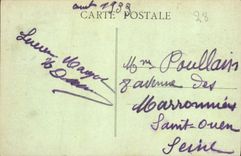 aout 1933
CARTE POSTALE
28
Mme Poullain
7 avenue des
Marronniers
Saint-Ouen
Seine